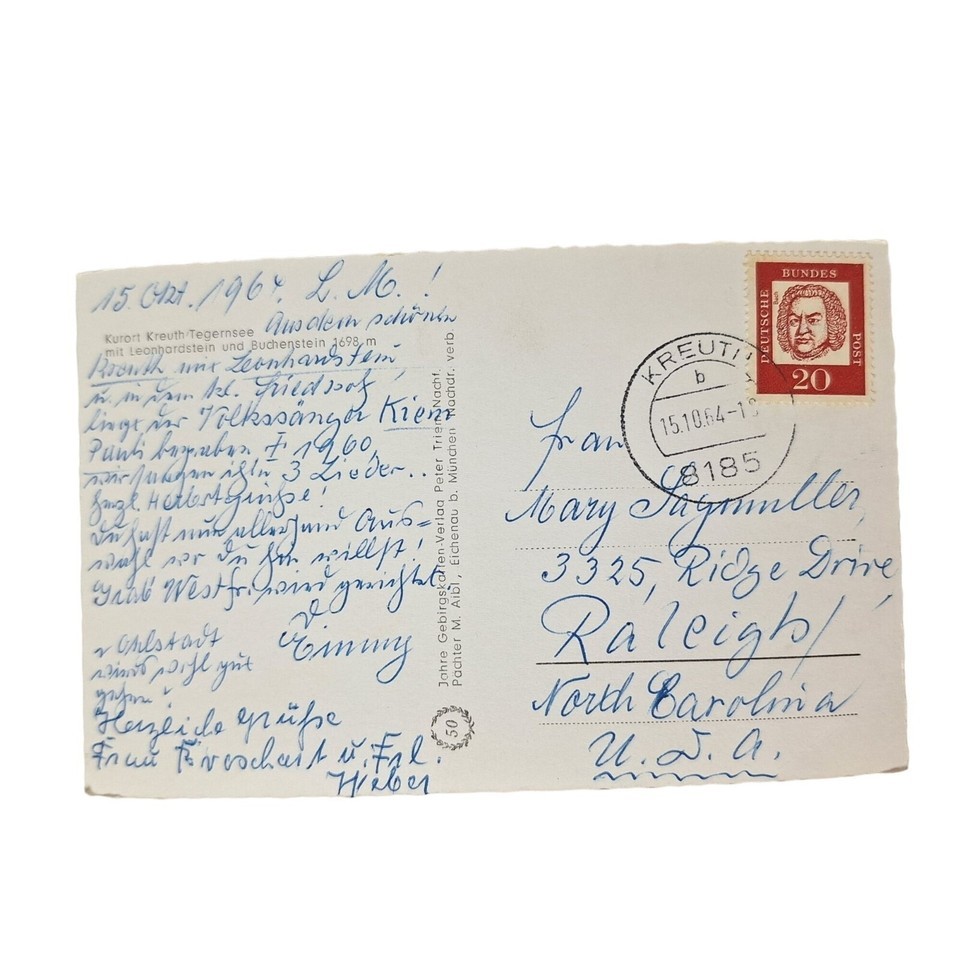 15. Okt. 1964. L. M.!
Kurort Kreuth-Tegernsee
mit Leonhardstein und Buchenstein 1698 m
Aus dem schönen
Kreuth mit Leonhardstein,
u. in dem kl. Friedhof
liegt der Volkssänger Kiem
Pauli begraben † 1960,
wir sangen ihm 3 Lieder..
Herzl. Herbstgrüße!
Du hast nun allerhand Aus=
wahl wo Du hin willst!
Grab Westfr. wird gerichtet.
D.
Emmy
Ohlstadt
wird's wohl gut
gehen!
Herzliche Grüße
Frau u. Frl.
Weber
Jahre Gebirgskarten-Verlag Peter Trien Nachf.
Pächter M. Aibl, Eichenau b. München Nachdr. verb.
50
DEUTSCHE BUNDES POST
20
KREUTH
b
15.10.64-1
8185
Frau
Mary Sagmüller,
3325, Ridge Drive,
Raleigh/
North Carolina
U.S.A.